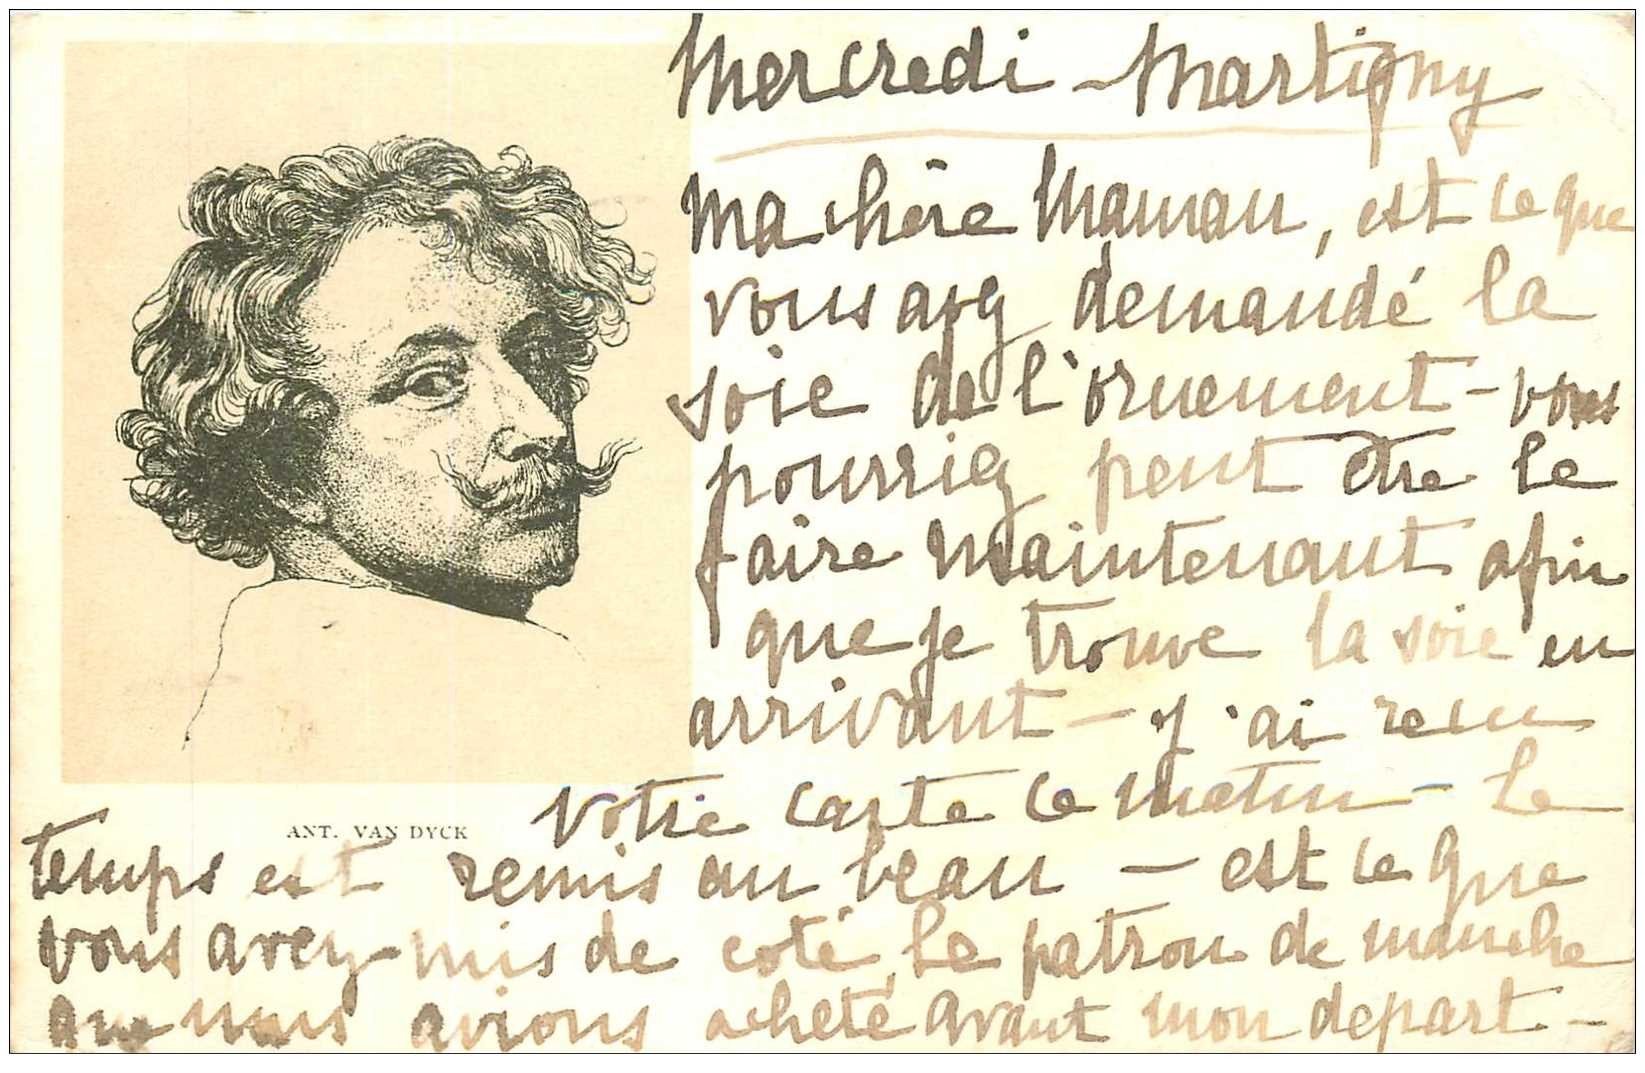 Mercredi - Martigny
Ma chère Maman, est ce que
vous avez demandé la
soie de l'ornement - vous
pourriez peut être le
faire maintenant afin
que je trouve la soie en
arrivant - j'ai reçu
votre carte ce matin - Le
ANT. VAN DYCK
temps est remis au beau - est ce que
vous avez mis de coté le patron de manche
que nous avions acheté avant mon depart -